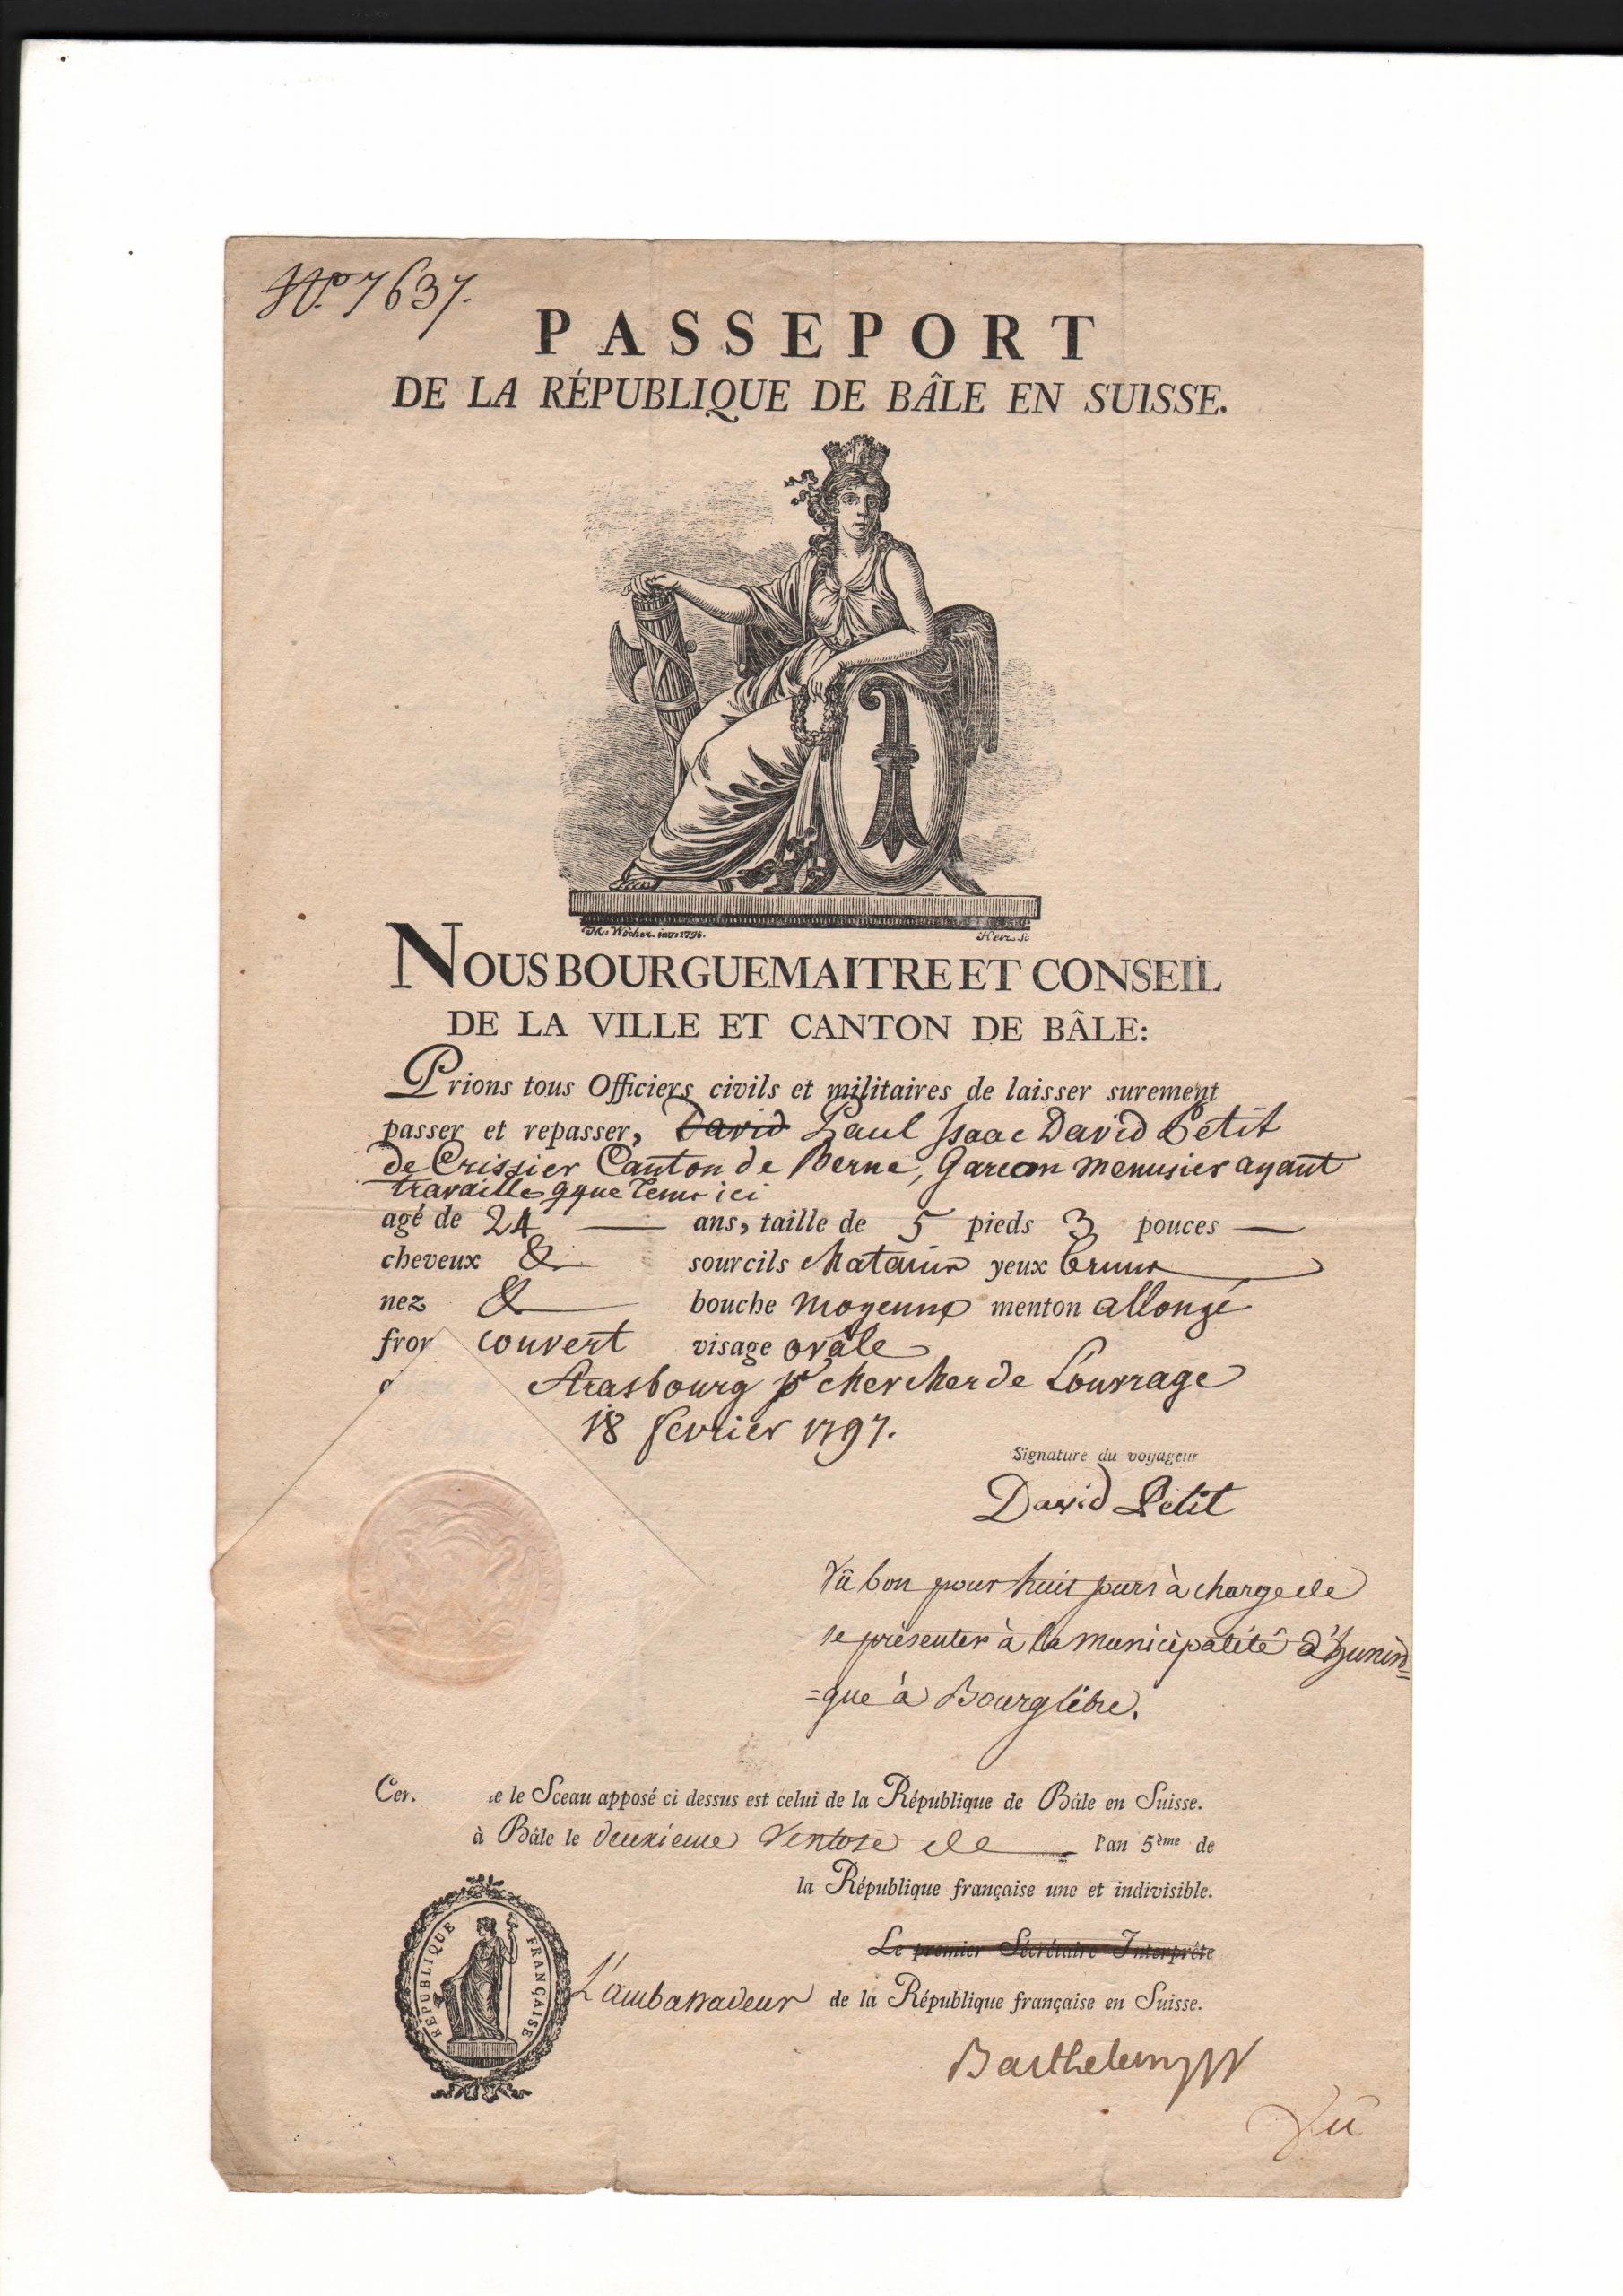 No. 7637.
PASSEPORT
DE LA RÉPUBLIQUE DE BÂLE EN SUISSE.
M. Wocher. inv. 1796.
NOUS BOURGUEMAITRE ET CONSEIL
DE LA VILLE ET CANTON DE BÂLE:
Prions tous Officiers civils et militaires de laisser surement
passer et repasser, David Paul Isaac David Petit
de Crissier Canton de Berne, Garcon menusier ayant
travaille qque tems ici
agé de 24 ans, taille de 5 pieds 3 pouces
cheveux & sourcils chatains yeux bruns
nez & bouche moyenne menton allongé
fron couvert visage ovale
Strasbourg pr chercher de L'ouvrage
18 fevrier 1797.
Signature du voyageur
David Petit
Vû bon pour huit jours à charge de
se présenter à la municipalité d'hunin=
=gue à Bourglibre.
Cer. e le Sceau apposé ci dessus est celui de la République de Bâle en Suisse.
à Bâle le deuxieme Ventose de l'an 5ème de
la République française une et indivisible.
Le premier Sécrétaire Interprête
L'ambassadeur de la République française en Suisse.
RÉPUBLIQUE FRANÇAISE
Barthelemy
Vû